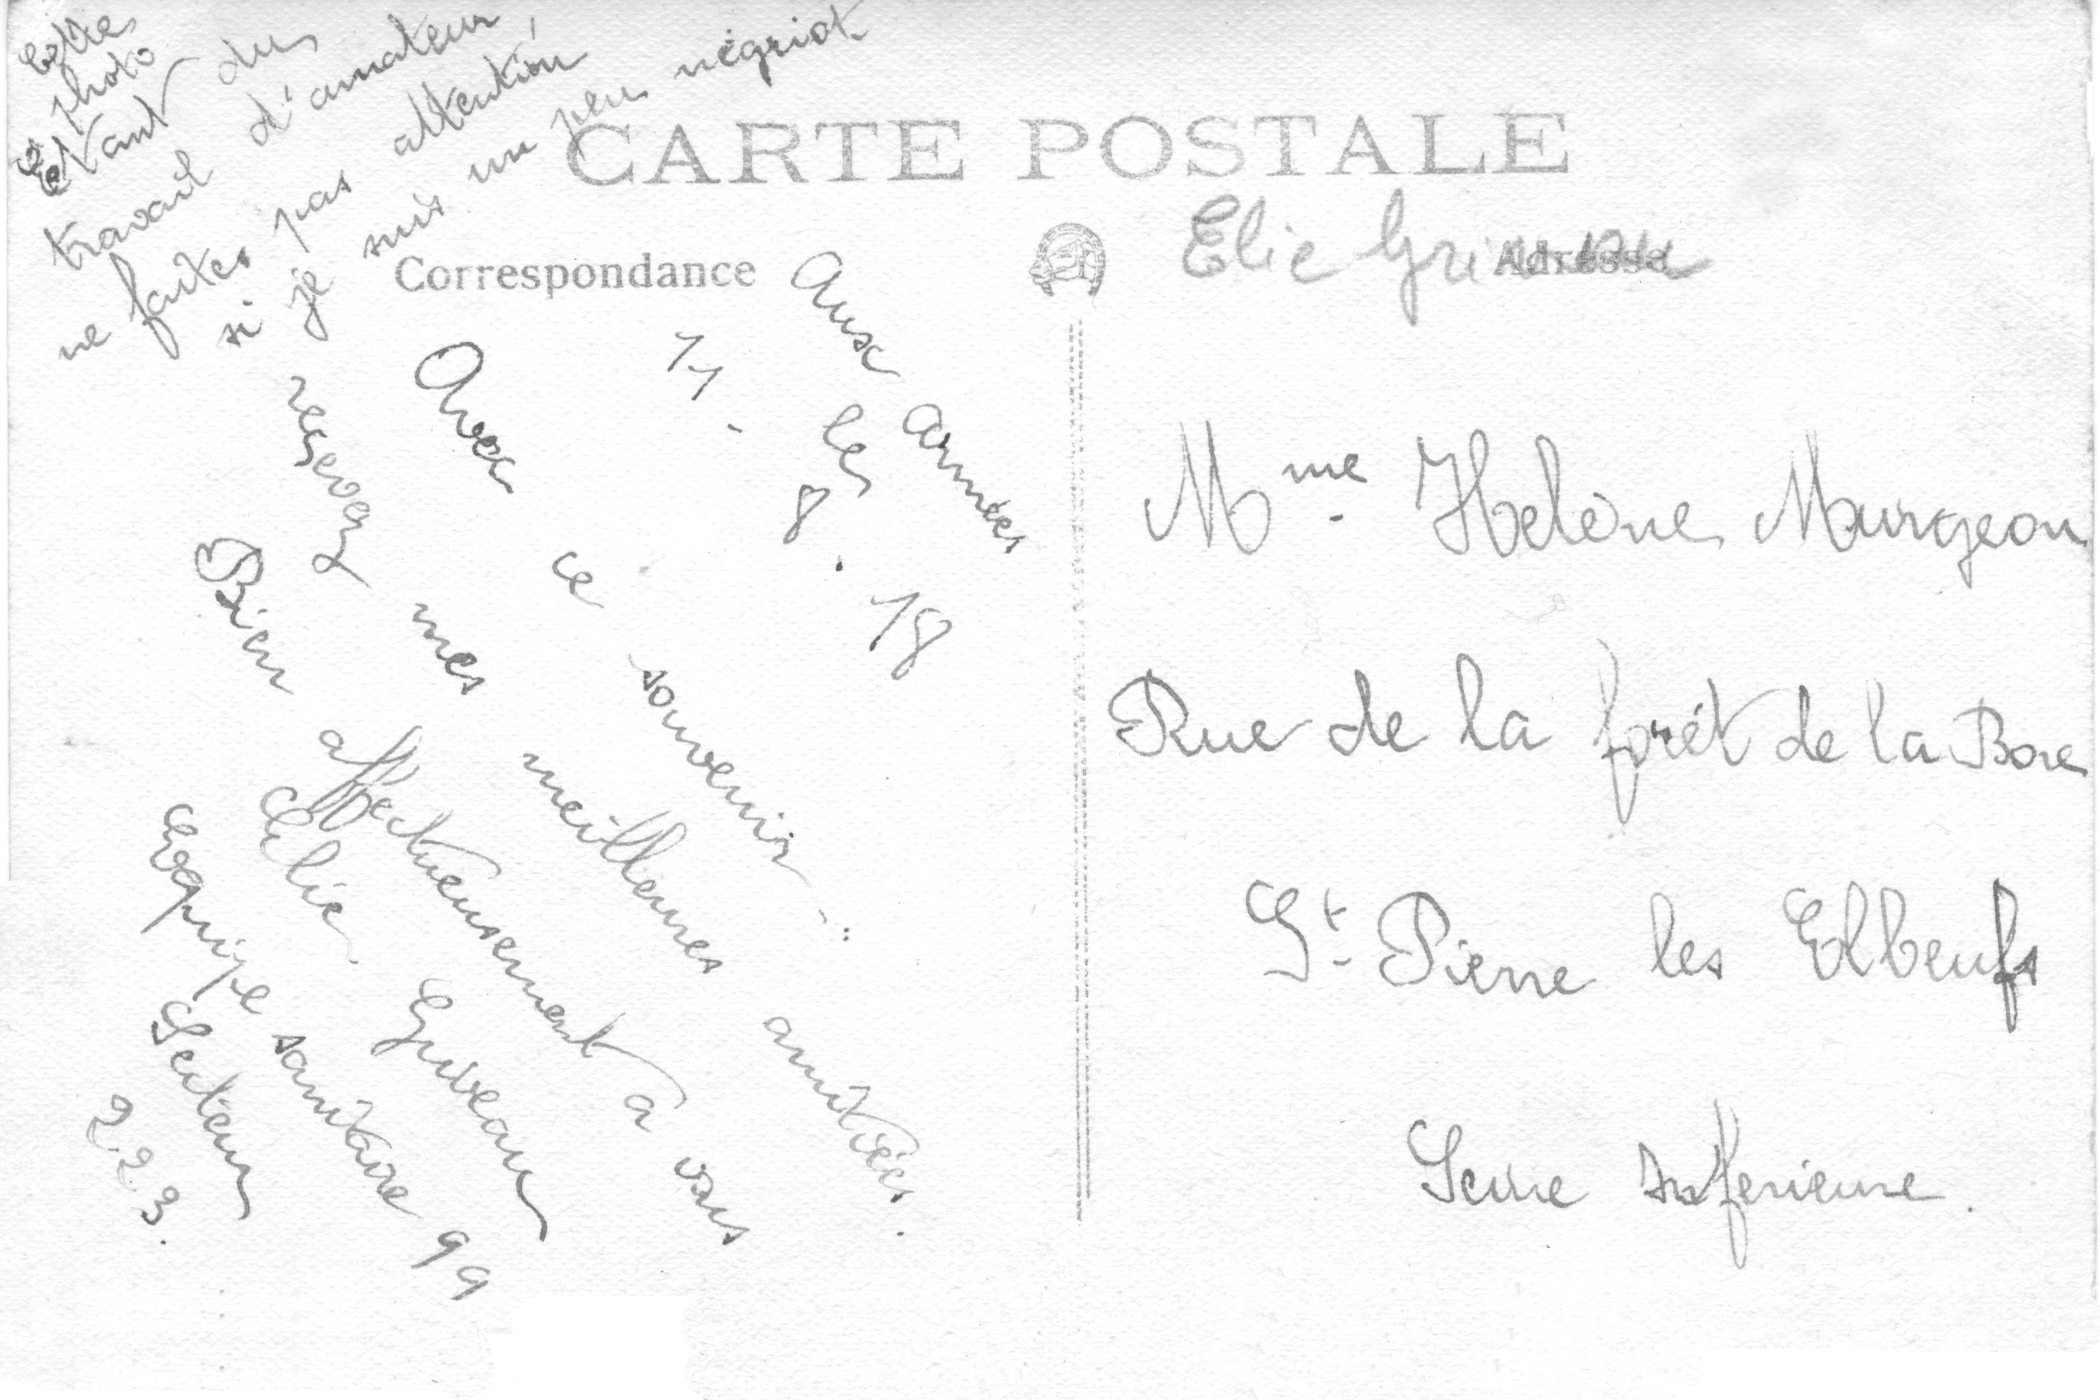 Cette
photo
Etant du
travail d'amateur
ne faites pas attention
si je suis un peu négriot
CARTE POSTALE
Correspondance
Elie Griveau
Adresse
Aux armées
les
11 - 8 . 18
Avec ce souvenir
recevez mes meilleures amitiées.
Bien affectueusement a vous
Elie Griveau
Equipe sanitaire 99
Secteur
223.
Mme Helène Murgeon
Rue de la forêt de la Bore
St. Pierre les Elbeufs
Seine Inferieure.